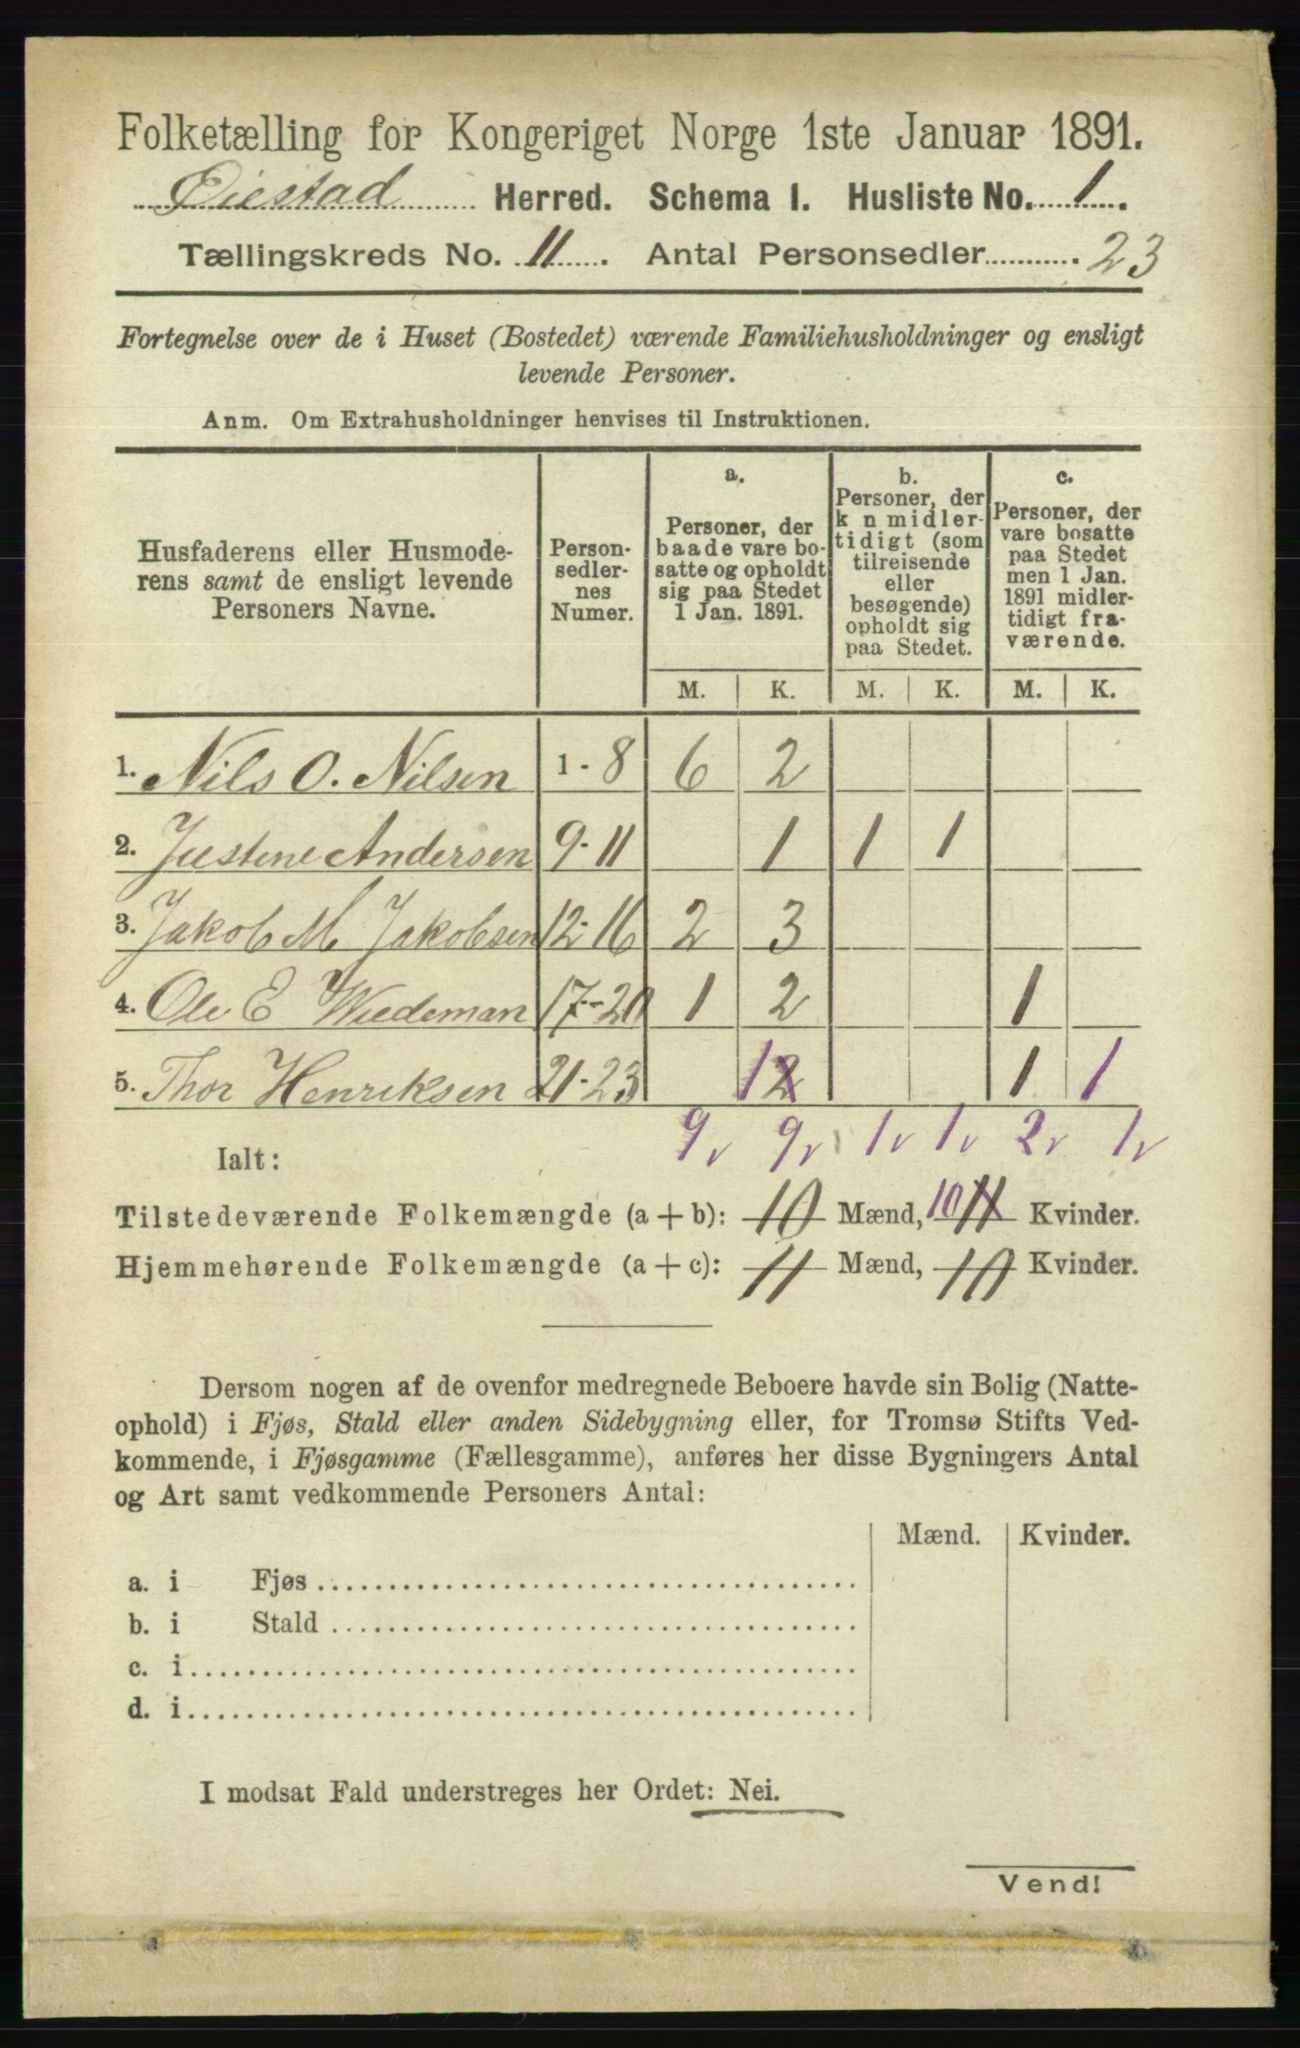 Folketælling for Kongeriget Norge 1ste Januar 1891.
Øiestad Herred. Schema 1. Husliste No. 1.
Tællingskreds No. 11. Antal Personsedler 23
Fortegnelse over de i Huset (Bostedet) værende Familiehusholdninger og ensligt
levende Personer.
Anm. Om Extrahusholdninger henvises til Instruktionen.
Husfaderens eller Husmode-
rens samt de ensligt levende
Personers Navne.
Person-
sedler-
nes
Numer.
a.
Personer, der
baade vare bo-
satte og opholdt
sig paa Stedet
1 Jan. 1891.
b.
Personer, der
k n midler-
tidigt (som
tilreisende
eller
besøgende)
opholdt sig
paa Stedet.
c.
Personer, der
vare bosatte
paa Stedet
men 1 Jan.
1891 midler-
tidigt fra-
værende.
M. K. M. K. M. K.
1. Nils O. Nilsen 1-8 6 2
2. Justine Andersen 9-11 1 1 1
3. Jakob M Jakobsen 12-16 2 3
4. Ole E Wiedeman 17-20 1 2 1
5. Thor Henriksen 21-23 1 2 1 1
Ialt: 9 9 1 1 2 1
Tilstedeværende Folkemængde (a + b): 10 Mænd, 10 11 Kvinder.
Hjemmehørende Folkemængde (a + c): 11 Mænd, 10 Kvinder.
Dersom nogen af de ovenfor medregnede Beboere havde sin Bolig (Natte-
ophold) i Fjøs, Stald eller anden Sidebygning eller, for Tromsø Stifts Ved-
kommende, i Fjøsgamme (Fællesgamme), anføres her disse Bygningers Antal
og Art samt vedkommende Personers Antal:
Mænd. Kvinder.
a. i Fjøs
b. i Stald
c. i
d. i
I modsat Fald understreges her Ordet: Nei.
Vend!